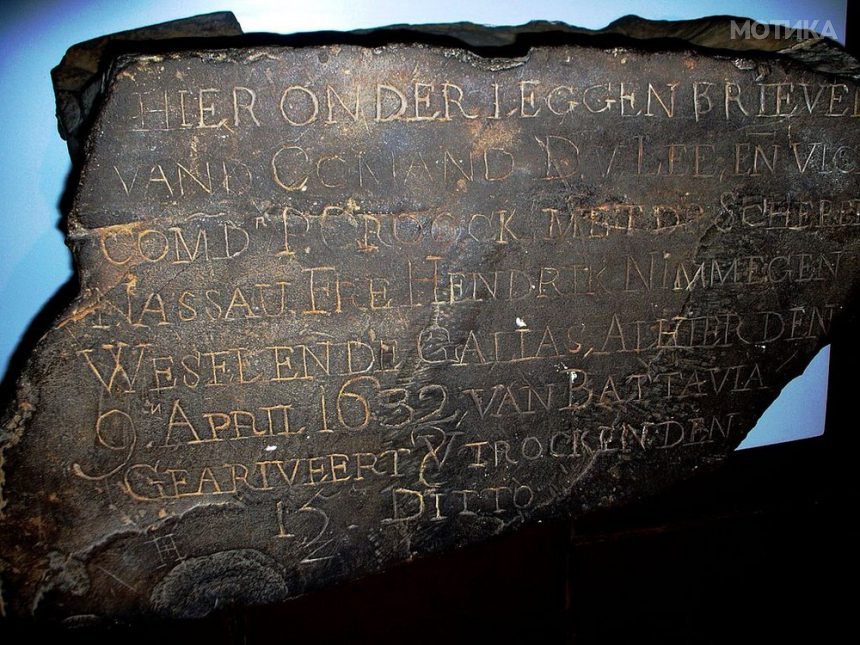 МОТИКА
HIER ONDER LEGGEN BRIEVEN
VAND COMAND D. V LEE, EÑ VIC
COMDR P CROOCK MET DE SCHEPE
NASSAU. FRE HENDRIK NIMMEGEN
WESEL ENDE GALIAS, ALHIER DEN
9N APRIL 1632, VAN BATTAVIA
GEARIVEERT, & VTROCKEN DEN
15 DITTO